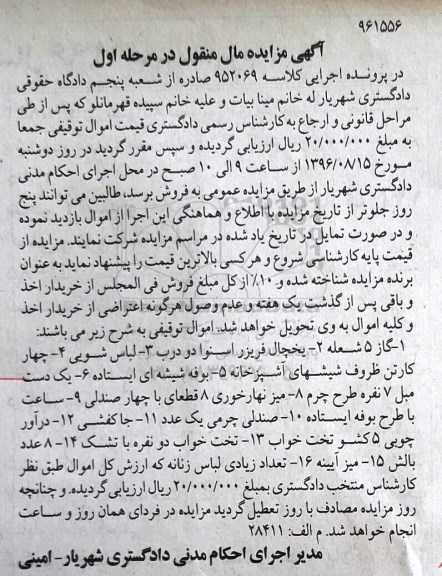 ۹۶۱۵۵۶
آگهی مزایده مال منقول در مرحله اول
در پرونده اجرایی کلاسه ۹۵۲۰۶۹ صادره از شعبه پنجم دادگاه حقوقی
دادگستری شهریار له خانم مینا بیات و علیه خانم سپیده قهرمانلو که پس از طی
مراحل قانونی و ارجاع به کارشناس رسمی دادگستری قیمت اموال توقیفی جمعا
به مبلغ ۲۰/۰۰۰/۰۰۰ ریال ارزیابی گردیده و سپس مقرر گردید در روز دوشنبه
مورخ ۱۳۹۶/۰۸/۱۵ از ساعت ۹ الی ۱۰ صبح در محل اجرای احکام مدنی
دادگستری شهریار از طریق مزایده عمومی به فروش برسد، طالبین می توانند پنج
روز جلوتر از تاریخ مزایده با اطلاع و هماهنگی این اجرا از اموال بازدید نموده
و در صورت تمایل در تاریخ یاد شده در مراسم مزایده شرکت نمایند. مزایده از
قیمت پایه کارشناسی شروع و هر کسی بالاترین قیمت را پیشنهاد نماید به عنوان
برنده مزایده شناخته شده و ۱۰٪ از کل مبلغ فروش فی المجلس از خریدار اخذ
و باقی پس از گذشت یک هفته و عدم وصول هرگونه اعتراضی از خریدار اخذ
و کلیه اموال به وی تحویل خواهد شد. اموال توقیفی به شرح زیر می باشند:
۱-گاز ۵ شعله ۲- یخچال فریزر اسنوا دو درب ۳- لباس شویی ۴- چهار
کارتن ظروف شیشهای آشپزخانه ۵- بوفه شیشه ای ایستاده ۶- یک دست
مبل ۷ نفره طرح چرم ۸- میز نهارخوری ۸ قطعای با چهار صندلی ۹- ساعت
با طرح بوفه ایستاده ۱۰- صندلی چرمی یک عدد ۱۱- جا کفشی ۱۲- درآور
چوبی ۵ کشو تخت خواب ۱۳- تخت خواب دو نفره با تشک ۱۴- ۸ عدد
بالش ۱۵- میز آیینه ۱۶- تعداد زیادی لباس زنانه که ارزش کل اموال طبق نظر
کارشناس منتخب دادگستری بمبلغ ۲۰/۰۰۰/۰۰۰ ریال ارزیابی گردیده. و چنانچه
روز مزایده مصادف با روز تعطیل گردید مزایده در فردای همان روز و ساعت
انجام خواهد شد. م الف: ۲۸۴۱۱
مدیر اجرای احکام مدنی دادگستری شهریار- امینی